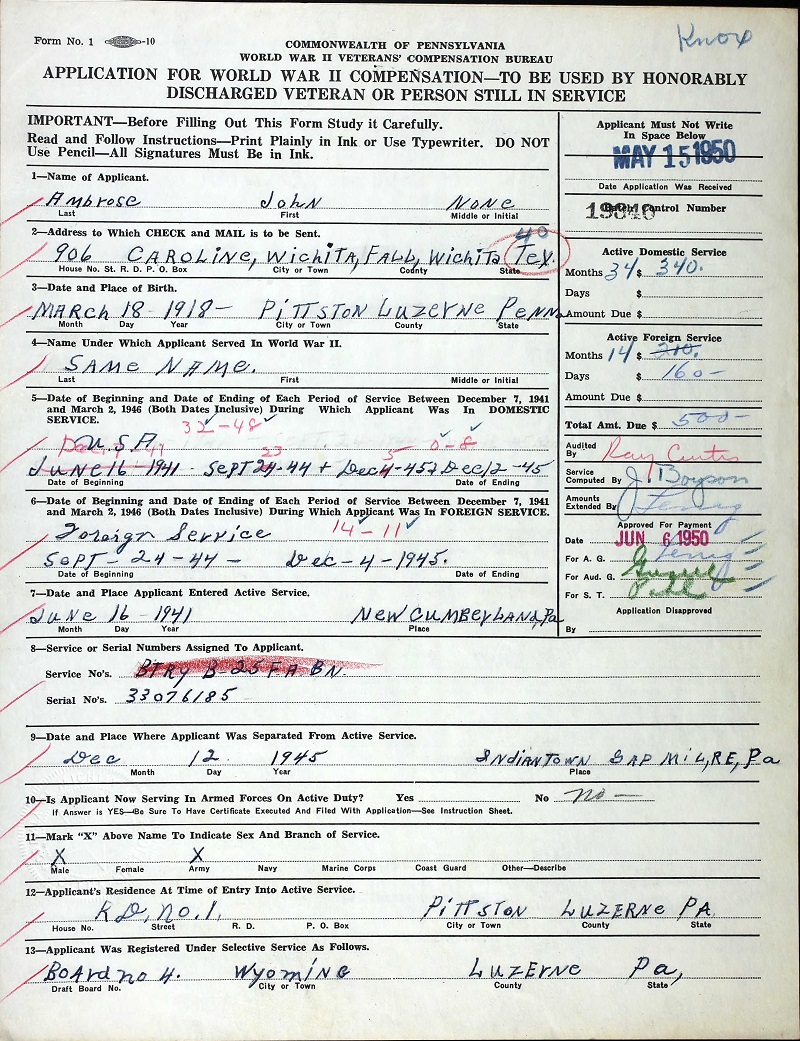 Form No. 1 -10
Knox
COMMONWEALTH OF PENNSYLVANIA
WORLD WAR II VETERANS' COMPENSATION BUREAU
APPLICATION FOR WORLD WAR II COMPENSATION—TO BE USED BY HONORABLY
DISCHARGED VETERAN OR PERSON STILL IN SERVICE
IMPORTANT—Before Filling Out This Form Study it Carefully.
Read and Follow Instructions—Print Plainly in Ink or Use Typewriter. DO NOT
Use Pencil—All Signatures Must Be in Ink.
Applicant Must Not Write
In Space Below
MAY 15 1950
Date Application Was Received
Batch Control Number
1—Name of Applicant.
Ambrose John None
Last First Middle or Initial
2—Address to Which CHECK and MAIL is to be Sent.
40
906 CAROLINE, Wichita, FALL, Wichita Tex.
House No. St. R. D. P. O. Box City or Town County State
3—Date and Place of Birth.
MARCH 18 - 1918 - PiTTSTON LUZERNE PENN.
Month Day Year City or Town County State
4—Name Under Which Applicant Served In World War II.
SAME NAME.
Last First Middle or Initial
5—Date of Beginning and Date of Ending of Each Period of Service Between December 7, 1941
and March 2, 1946 (Both Dates Inclusive) During Which Applicant Was In DOMESTIC
SERVICE.
32-48
Dec. 7, 41 U.S.A. 23 5 0-8
JUNE 16 - 1941 - SEPT 24-44 + Dec 4-45 Dec 12-45
Date of Beginning Date of Ending
6—Date of Beginning and Date of Ending of Each Period of Service Between December 7, 1941
and March 2, 1946 (Both Dates Inclusive) During Which Applicant Was In FOREIGN SERVICE.
Foreign Service 14-11
SEPT - 24-44 - Dec-4-1945.
Date of Beginning Date of Ending
7—Date and Place Applicant Entered Active Service.
JUNE 16 - 1941 NEW CUMBERLAND, Pa
Month Day Year Place
Active Domestic Service
Months 34 $ 340.
Days $
Amount Due $
Active Foreign Service
Months 14 $ 210.
Days $ 160-
Amount Due $
Total Amt. Due $ 500-
Audited
By Ray Curtis
Service
Computed By J. Boyson
Amounts
Extended By
Approved For Payment
Date JUN 6 1950
For A. G.
For Aud. G.
For S. T.
Application Disapproved
By
8—Service or Serial Numbers Assigned To Applicant.
Service No's. BTRY B-25 F A BN.
Serial No's. 33076185
9—Date and Place Where Applicant Was Separated From Active Service.
Dec 12 1945 INDIANTOWN GAP MIL, RE, Pa
Month Day Year Place
10—Is Applicant Now Serving In Armed Forces On Active Duty? Yes No no-
If Answer is YES—Be Sure To Have Certificate Executed And Filed With Application—See Instruction Sheet.
11—Mark "X" Above Name To Indicate Sex and Branch of Service.
X X
Male Female Army Navy Marine Corps Coast Guard Other—Describe
12—Applicant's Residence At Time of Entry Into Active Service.
R.D. No. 1. PiTTSTON LUZERNE PA.
House No. Street R. D. P. O. Box City or Town County State
13—Applicant Was Registered Under Selective Service As Follows.
BOARD no 4. WYOMING LUZERNE Pa,
Draft Board No. City or Town County State